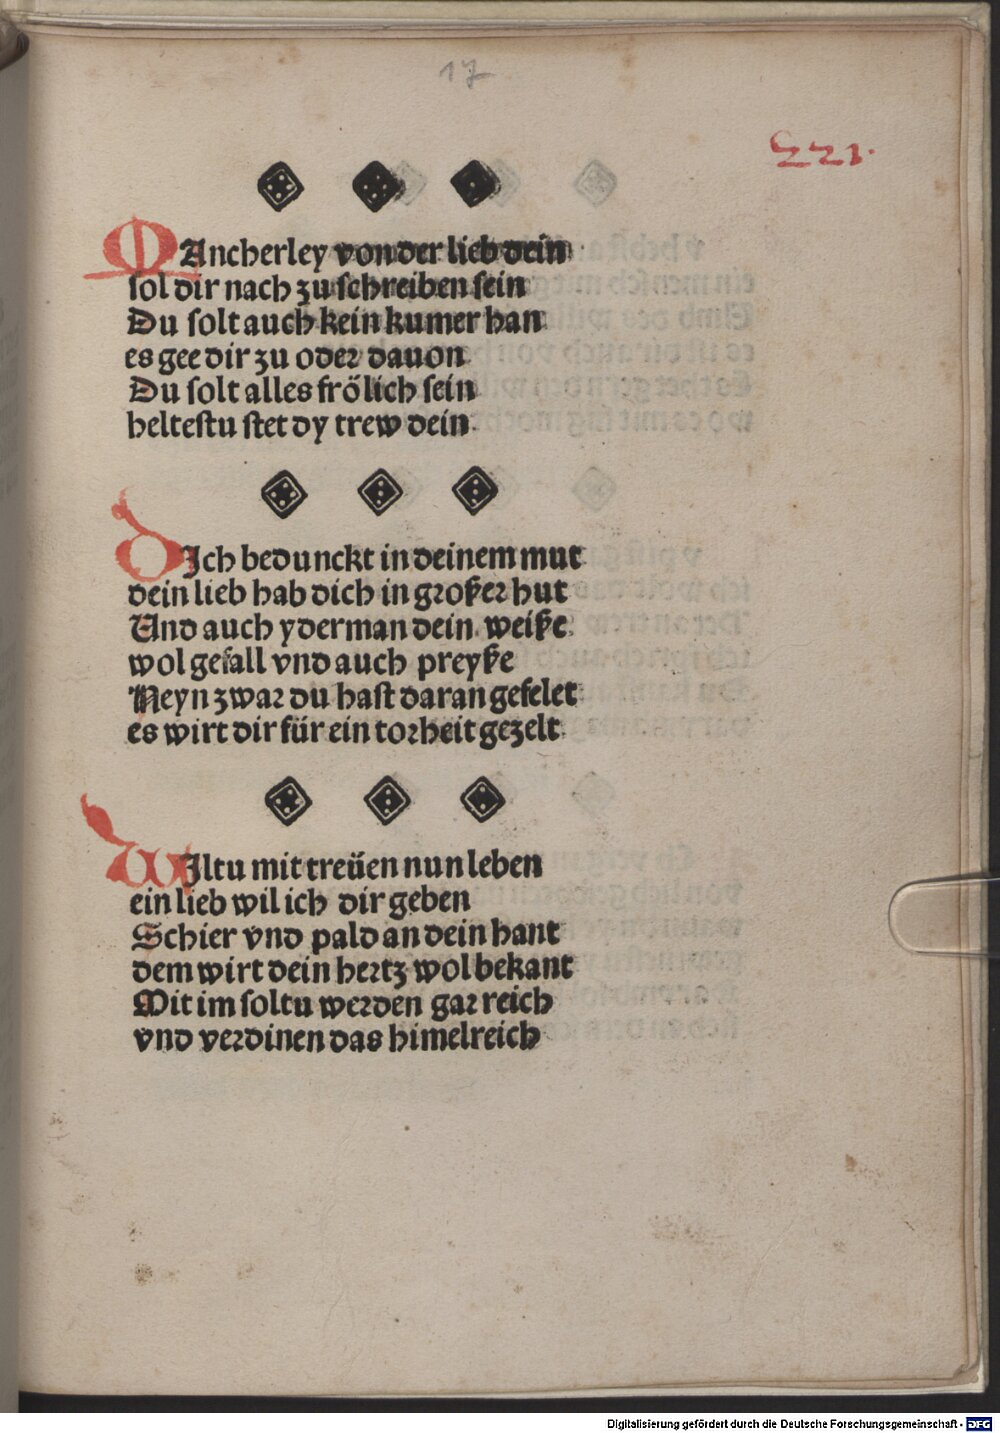 17
221.
MAncherley von der lieb dein
sol dir nach zu schreiben sein
Du solt auch kein kumer han
es gee dir zu oder dauon
Du solt alles frölich sein
heltestu stet dy trew dein
DIch bedunckt in deinem mut
dein lieb hab dich in großer hut
Und auch yderman dein weiße
wol gefall vnd auch preyße
Neyn zwar du hast daran gefelet
es wirt dir für ein torheit gezelt
WIltu mit treüen nun leben
ein lieb wil ich dir geben
Schier vnd pald an dein hant
dem wirt dein hertz wol bekant
Mit im soltu werden gar reich
vnd verdinen das himelreich
Digitalisierung gefördert durch die Deutsche Forschungsgemeinschaft - DFG